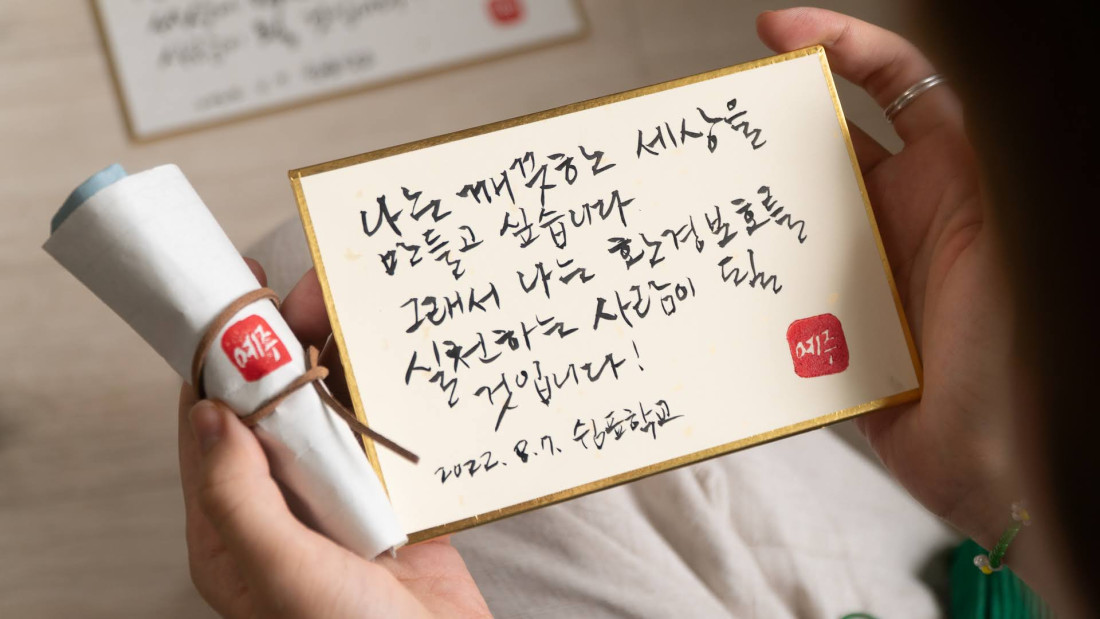 나는 깨끗하는 세상을
만들고 싶습니다
그래서 나는 환경보호를
실천하는 사람이 될
것입니다!
2022. 8. 7. 쉼표학교
예주
예주